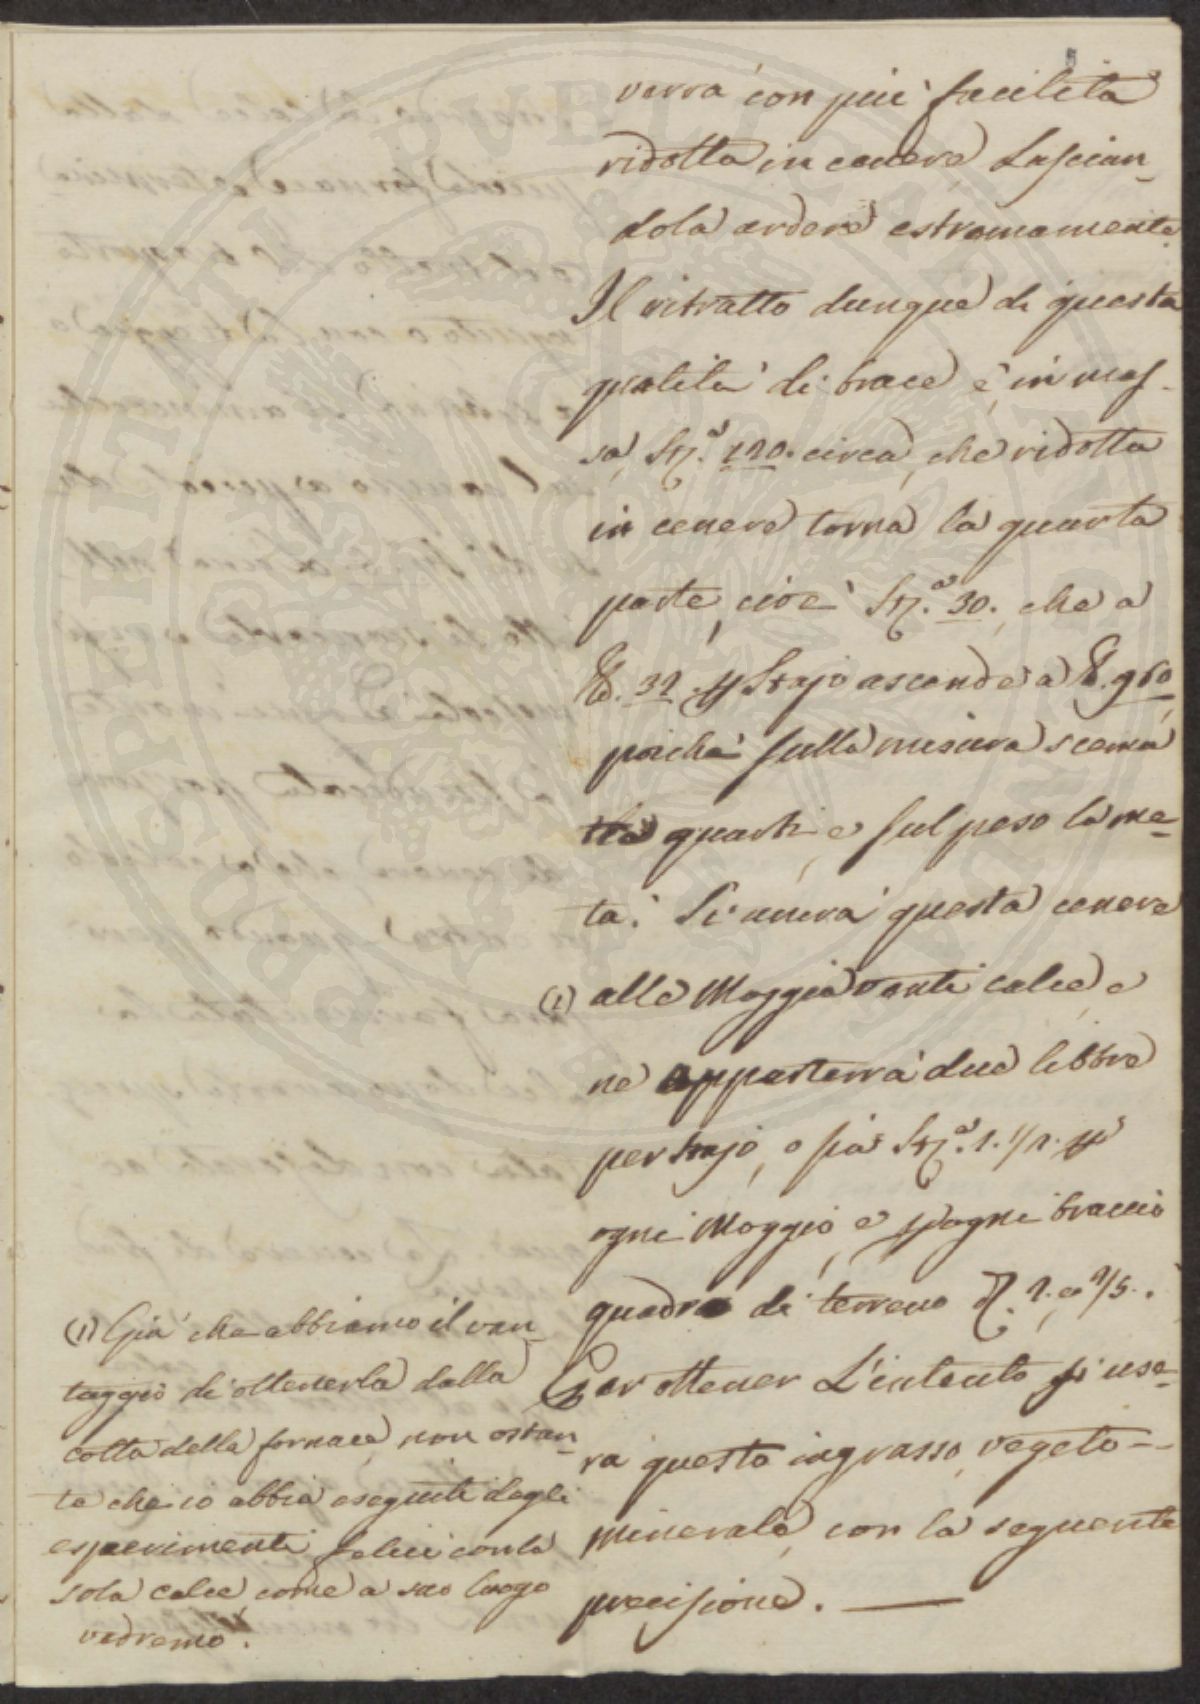 verrà con più facilità
ridotta in cenere Lascian-
dola ardere estremamente.
Il ritratto dunque di questa
qualità di brace è in mas-
sa, Stj.a 120. circa, che ridotta
in cenere torna la quarta
parte, cioè Stj.a 30. che a
lb. 32. p Strajo ascende a lb. 960
poichè sulla misura scema
tre quarti, e sul peso la me-
tà. Si unirà questa cenere
(1) alle Moggia venti calce, e
ne apparterrà due libbre
per strajo, o sia Stj.a 1. 1/2. p
ogni Moggio, e p ogni braccio
quadro di terreno 2. e 2/5.
Per ottener L'intento si use-
rà questo ingrasso vegeto-
minerale, con la seguente
precisione.
(1) Già che abbiamo il van-
taggio di ottenerla dalla
cotta della fornace, non ostan-
te che io abbia eseguiti degli
esperimenti felici con la
sola calce, come a suo luogo
vedremo.